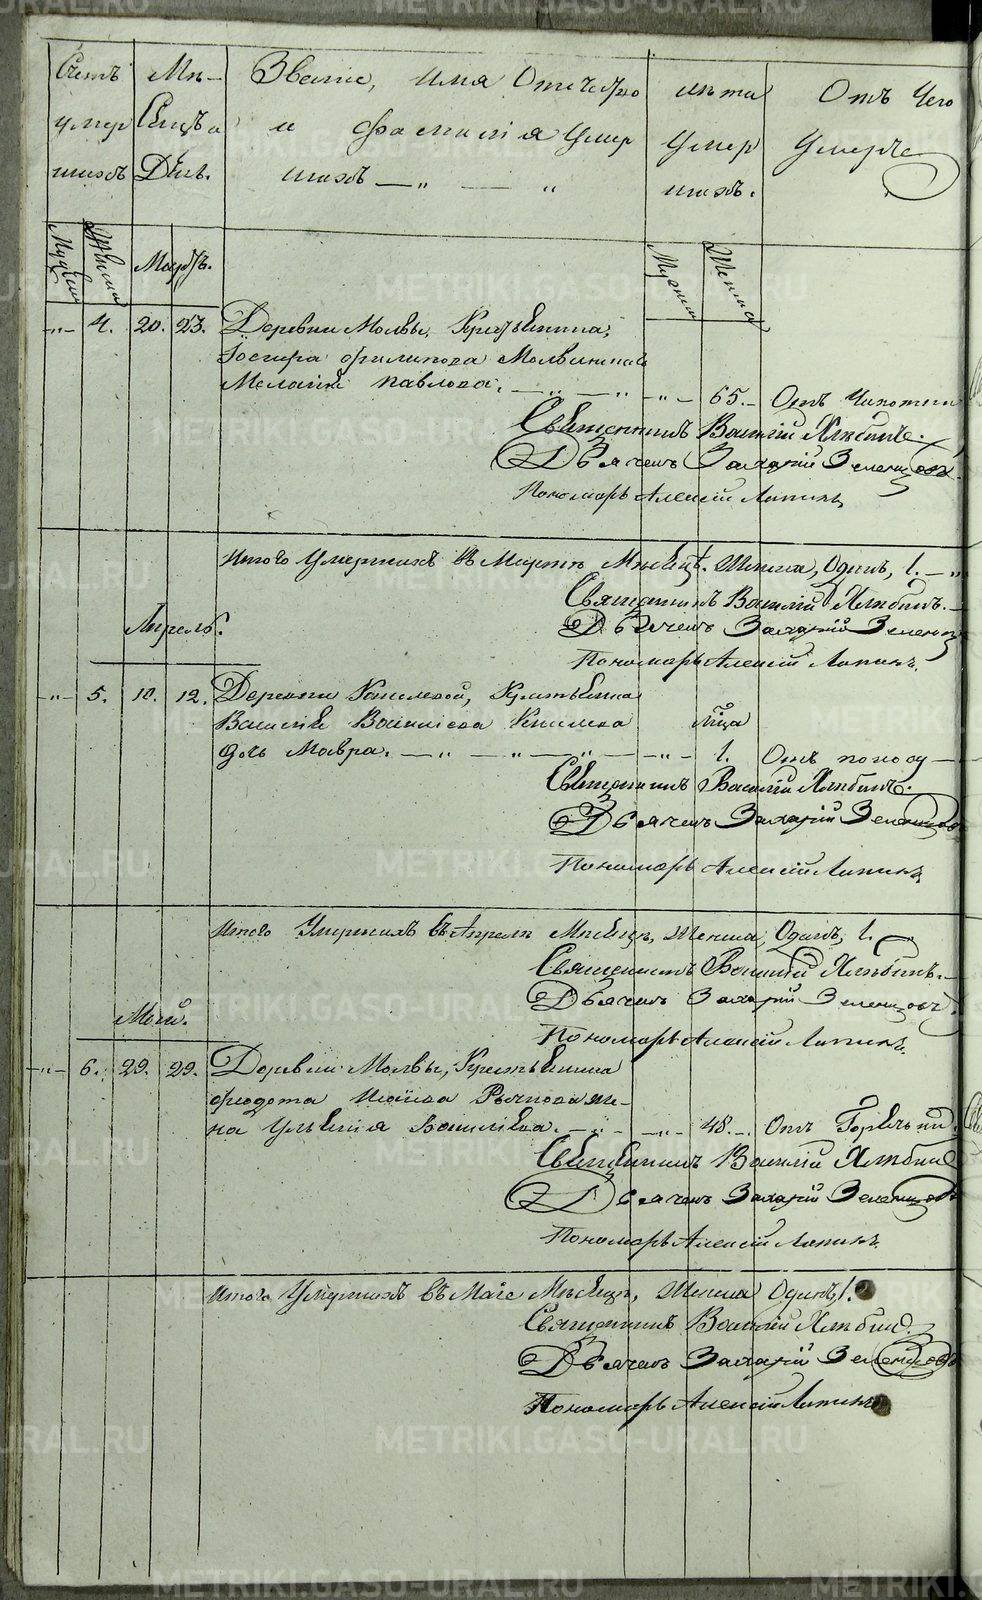 Счетъ умер шихъ
Мѣ- сяцъ и День.
Званіе, имя Отчество
и фамилія умер
шихъ — „ — „
лѣта умер шихъ.
Отъ Чего умерле
Мужска Женска Мартъ. Мужеска Женска
-„- 4. 20. 23. Деревни Молвы, Крестьянина,
Госифа Филипова Молвинска
Меланія Павлова. — „ — „ -„- 65. - Отъ Чихотки
Священникъ Василій Хлѣбинъ.
Дьячекъ Захарій Зеленцовъ.
Пономарь Алексій Липинъ
Итого Умершихъ въ Мартѣ Мѣсяцѣ. Женска, Одинъ, 1. — „
Священникъ Василій Хлѣбинъ.
Дьячекъ Захарій Зеленц
Пономарь Алексій Липинъ.
Апрель.
-„- 5. 10. 12. Деревни Киселевой, Крестьянина
Василія Васильева Киселева мѣца
дочь Мавра. — „ — „ — „ — „ - 1. Отъ поносу —
Священникъ Василій Хлѣбинъ.
Дьячекъ Захарій Зеленцовъ
Пономарь Алексій Липинъ
Итого Умершихъ въ Апрелѣ Мѣсяцѣ, Женска, Одинъ, 1.
Священникъ Василій Хлѣбинъ.
Дьячекъ Захарій Зеленцовъ.
Пономарь Алексій Липинъ.
Май.
-„- 6. 29. 29. Деревни Молвы, Крестьянина
Федота Исаіева же-
на Ульянія Васильева. -„- -„- 48. - Отъ Горячки.
Священникъ Василій Хлѣбин
Дьячекъ Захарій Зеленцовъ
Пономарь Алексій Липинъ.
Итого Умершихъ въ Маіе Мѣсяцѣ, Женска Одинъ, 1.
Священникъ Василій Хлѣбин.
Дьячекъ Захарій Зеленцовъ
Пономарь Алексій Липинъ
METRIKI.GASO-URAL.RU